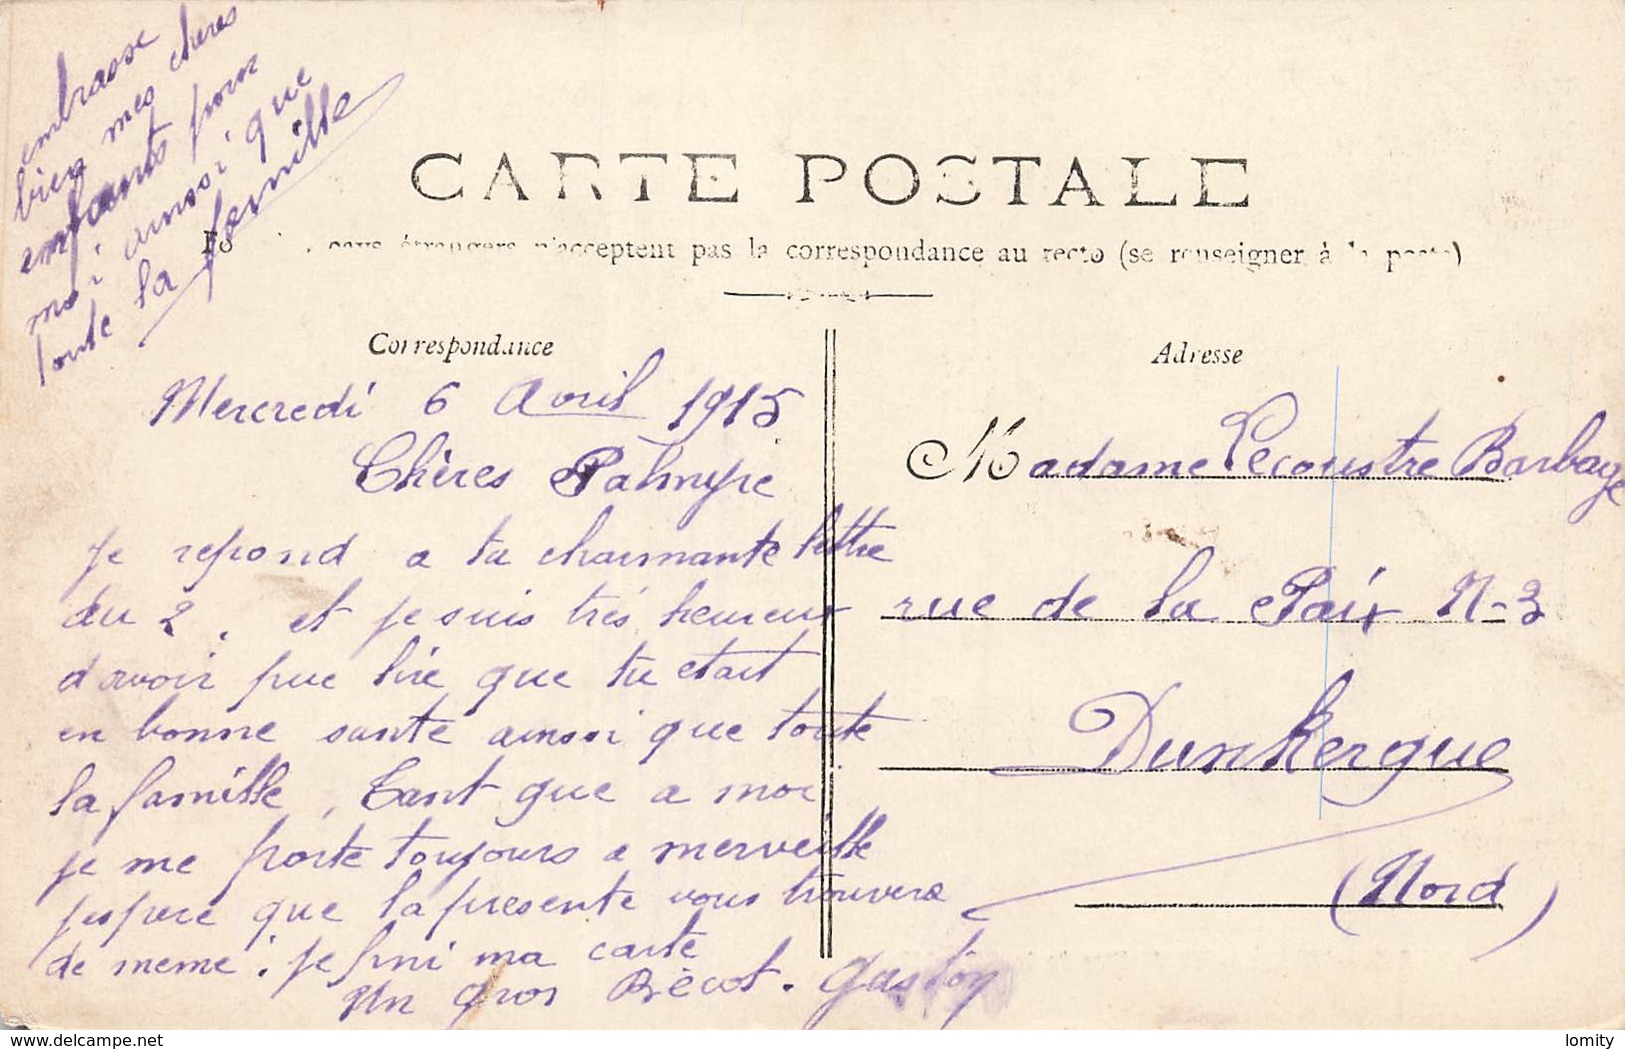 embrasse
bien mes cheres
enfants pour
moi ainssi que
toute la famille
CARTE POSTALE
pays étrangers n'acceptent pas la correspondance au recto (se renseigner à la poste)
Correspondance
Mercredi 6 Avril 1915
Chères Palmyre
je repond a ta charmante lettre
du 2. et je suis très heureux
davoir pue lire que tu etait
en bonne sante ainssi que toute
la famille, Tant que a moi
je me porte toujours a merveille
jespere que la presente vous trouvera
de meme. je fini ma carte
Un gros Bècot. Gaston
Adresse
Madame Lecoustre Barbaye
rue de la Paix N-3
Dunkergue
(Nord)
www.delcampe.net
lomity